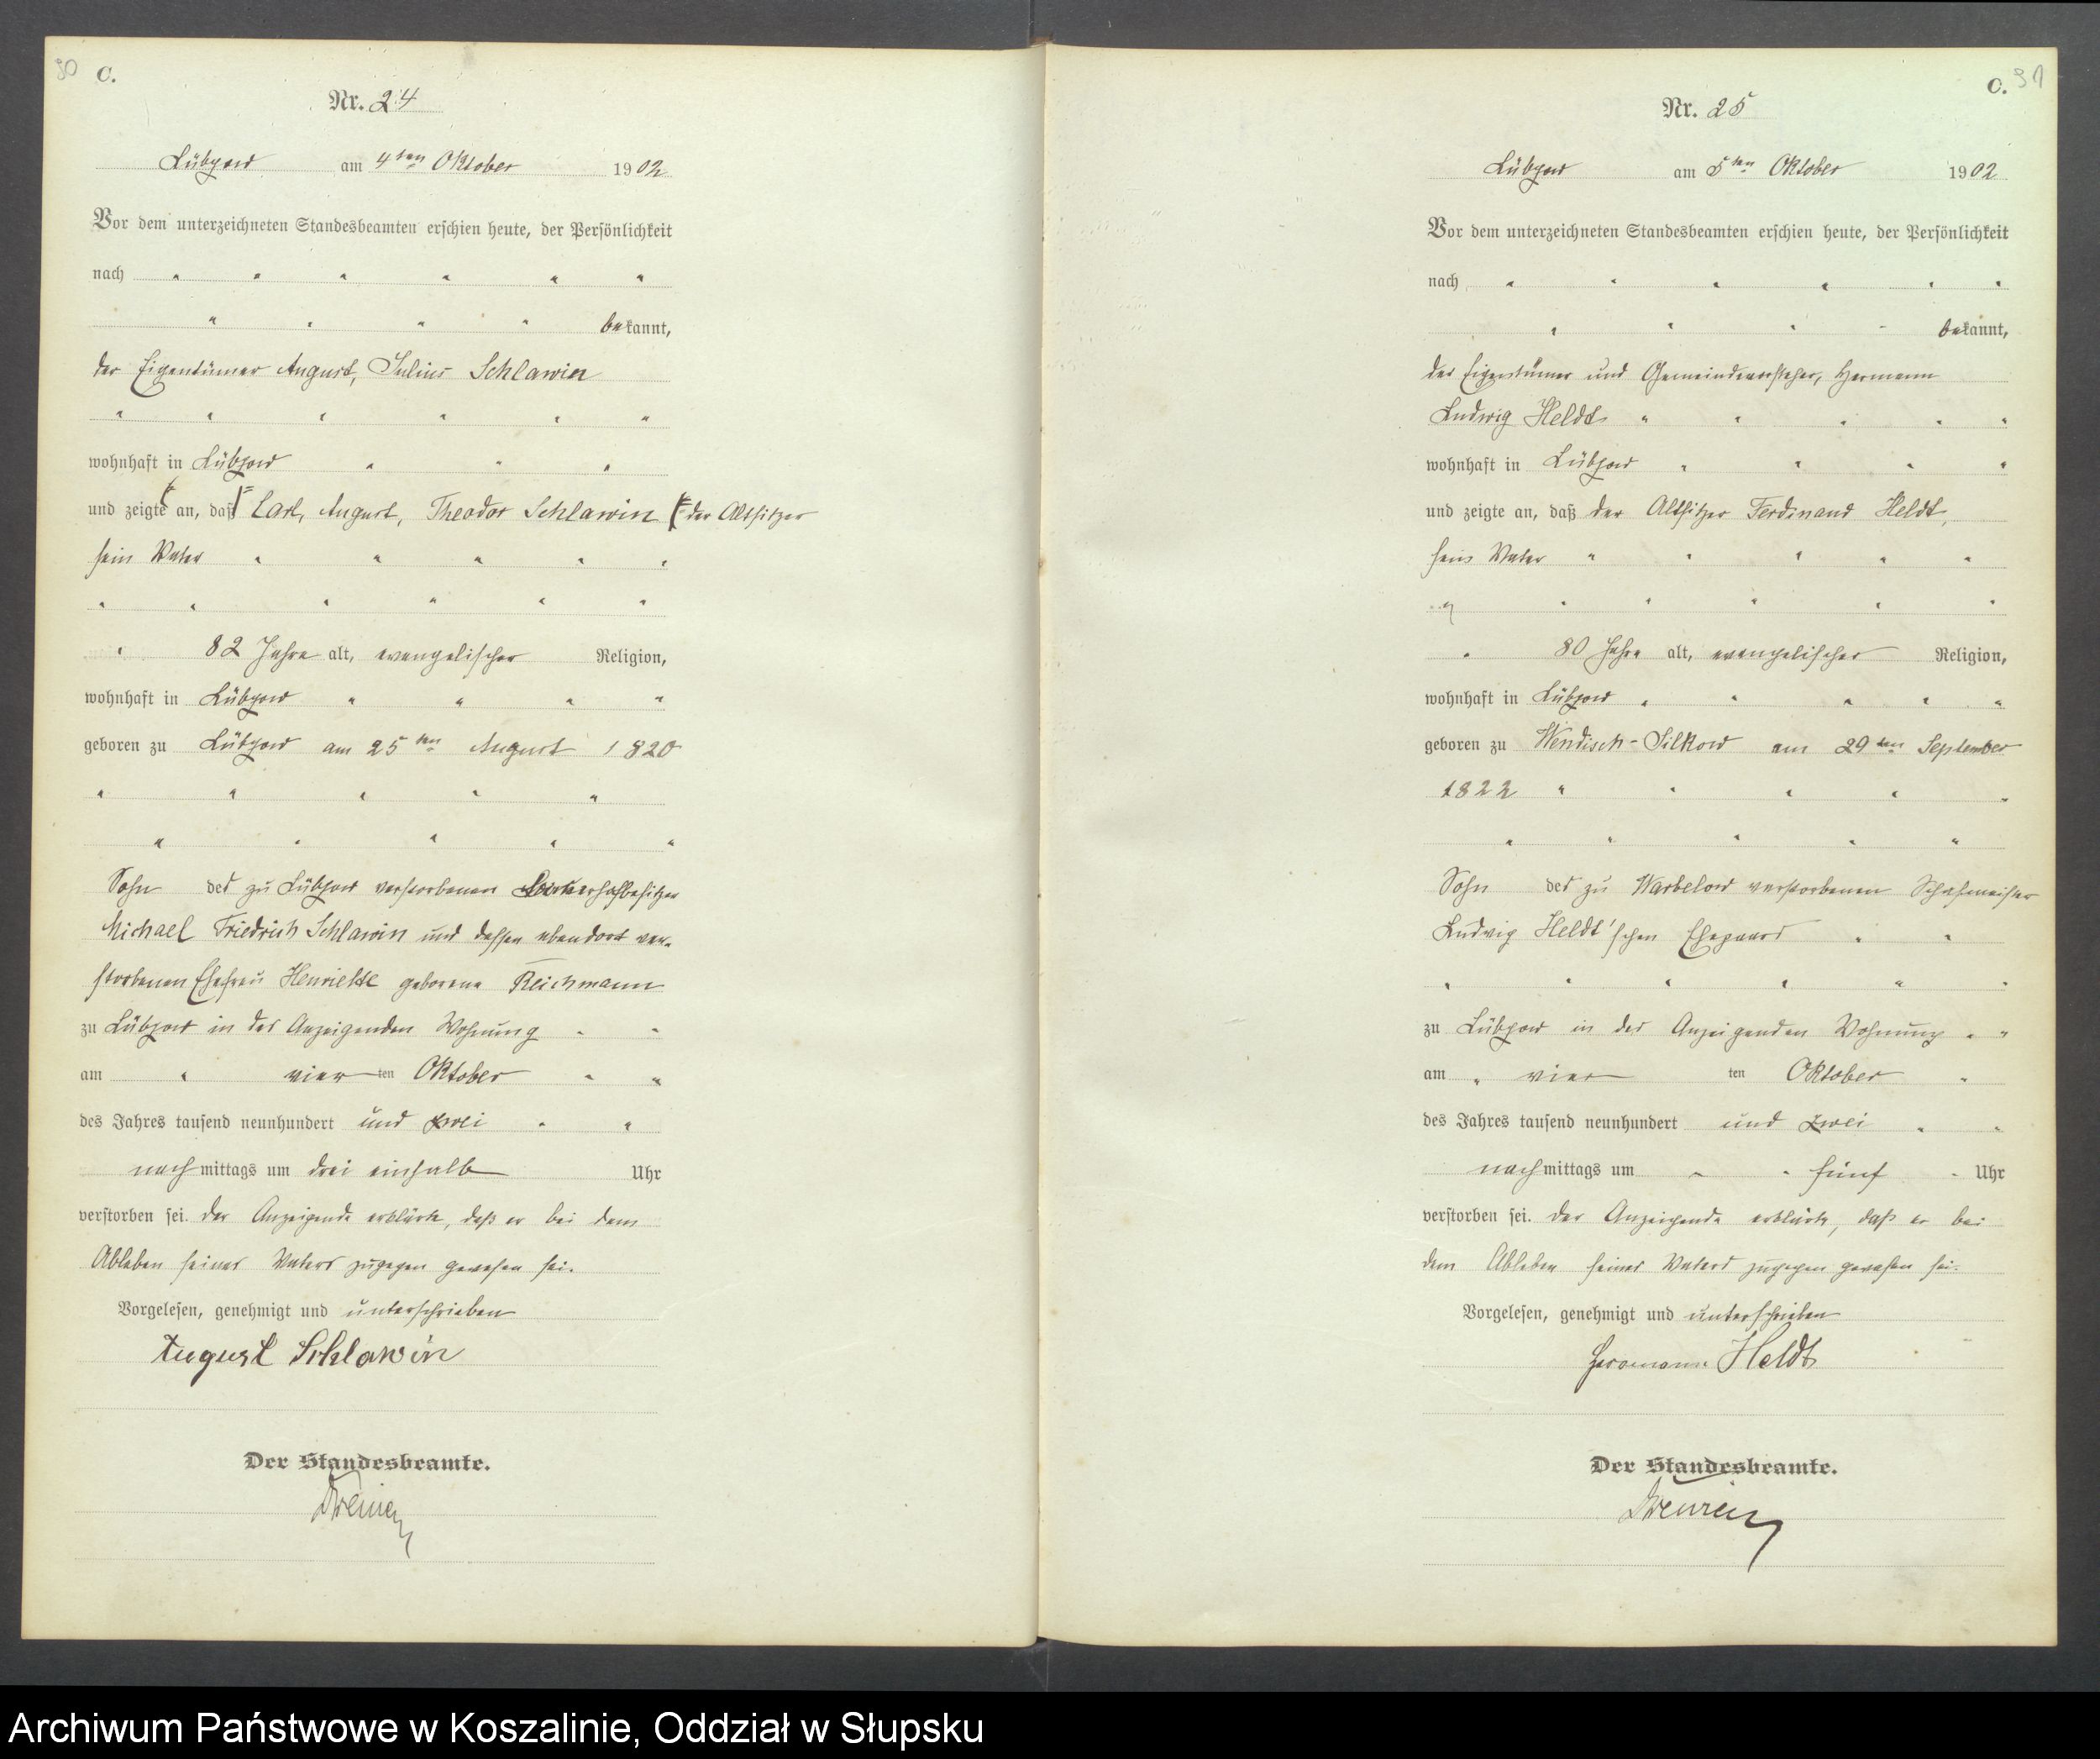 30
C.
Nr. 24
Lübzow am 4ten Oktober 1902
Vor dem unterzeichneten Standesbeamten erschien heute, der Persönlichkeit
nach
bekannt,
der Eigentümer August, Julius Schlawin
wohnhaft in Lübzow
und zeigte an, daß Carl, August, Theodor Schlawin der Altsitzer
sein Vater
82 Jahre alt, evangelischer Religion,
wohnhaft in Lübzow
geboren zu Lübzow am 25ten August 1820
Sohn des zu Lübzow verstorbenen
Michael Friedrich Schlawin und dessen ebendort ver-
storbenen Ehefrau Henriette geborene Reichmann
zu Lübzow in des Anzeigenden Wohnung
am vierten Oktober
des Jahres tausend neunhundert und zwei
nachmittags um drei einhalb Uhr
verstorben sei. Der Anzeigende erklärte, daß er bei dem
Ableben seines Vaters zugegen gewesen sei.
Vorgelesen, genehmigt und unterschrieben
August Schlawin
Der Standesbeamte.
C. 31
Nr. 25
Lübzow am 5ten Oktober 1902
Vor dem unterzeichneten Standesbeamten erschien heute, der Persönlichkeit
nach
bekannt,
der Eigentümer und Gemeindevorsteher, Hermann
Ludwig Heldt
wohnhaft in Lübzow
und zeigte an, daß der Altsitzer Ferdinand Heldt,
sein Vater
80 Jahre alt, evangelischer Religion,
wohnhaft in Lübzow
geboren zu Wendisch-Silkow am 29ten September
1822
Sohn des zu Warbelow verstorbenen Schafmeister
Ludwig Heldt'schen Ehepaars
zu Lübzow in des Anzeigenden Wohnung
am vier ten Oktober
des Jahres tausend neunhundert und zwei
nachmittags um fünf Uhr
verstorben sei. Der Anzeigende erklärte, daß er bei
dem Ableben seines Vaters zugegen gewesen sei.
Vorgelesen, genehmigt und unterschrieben
Hermann Heldt
Der Standesbeamte.
Archiwum Państwowe w Koszalinie, Oddział w Słupsku